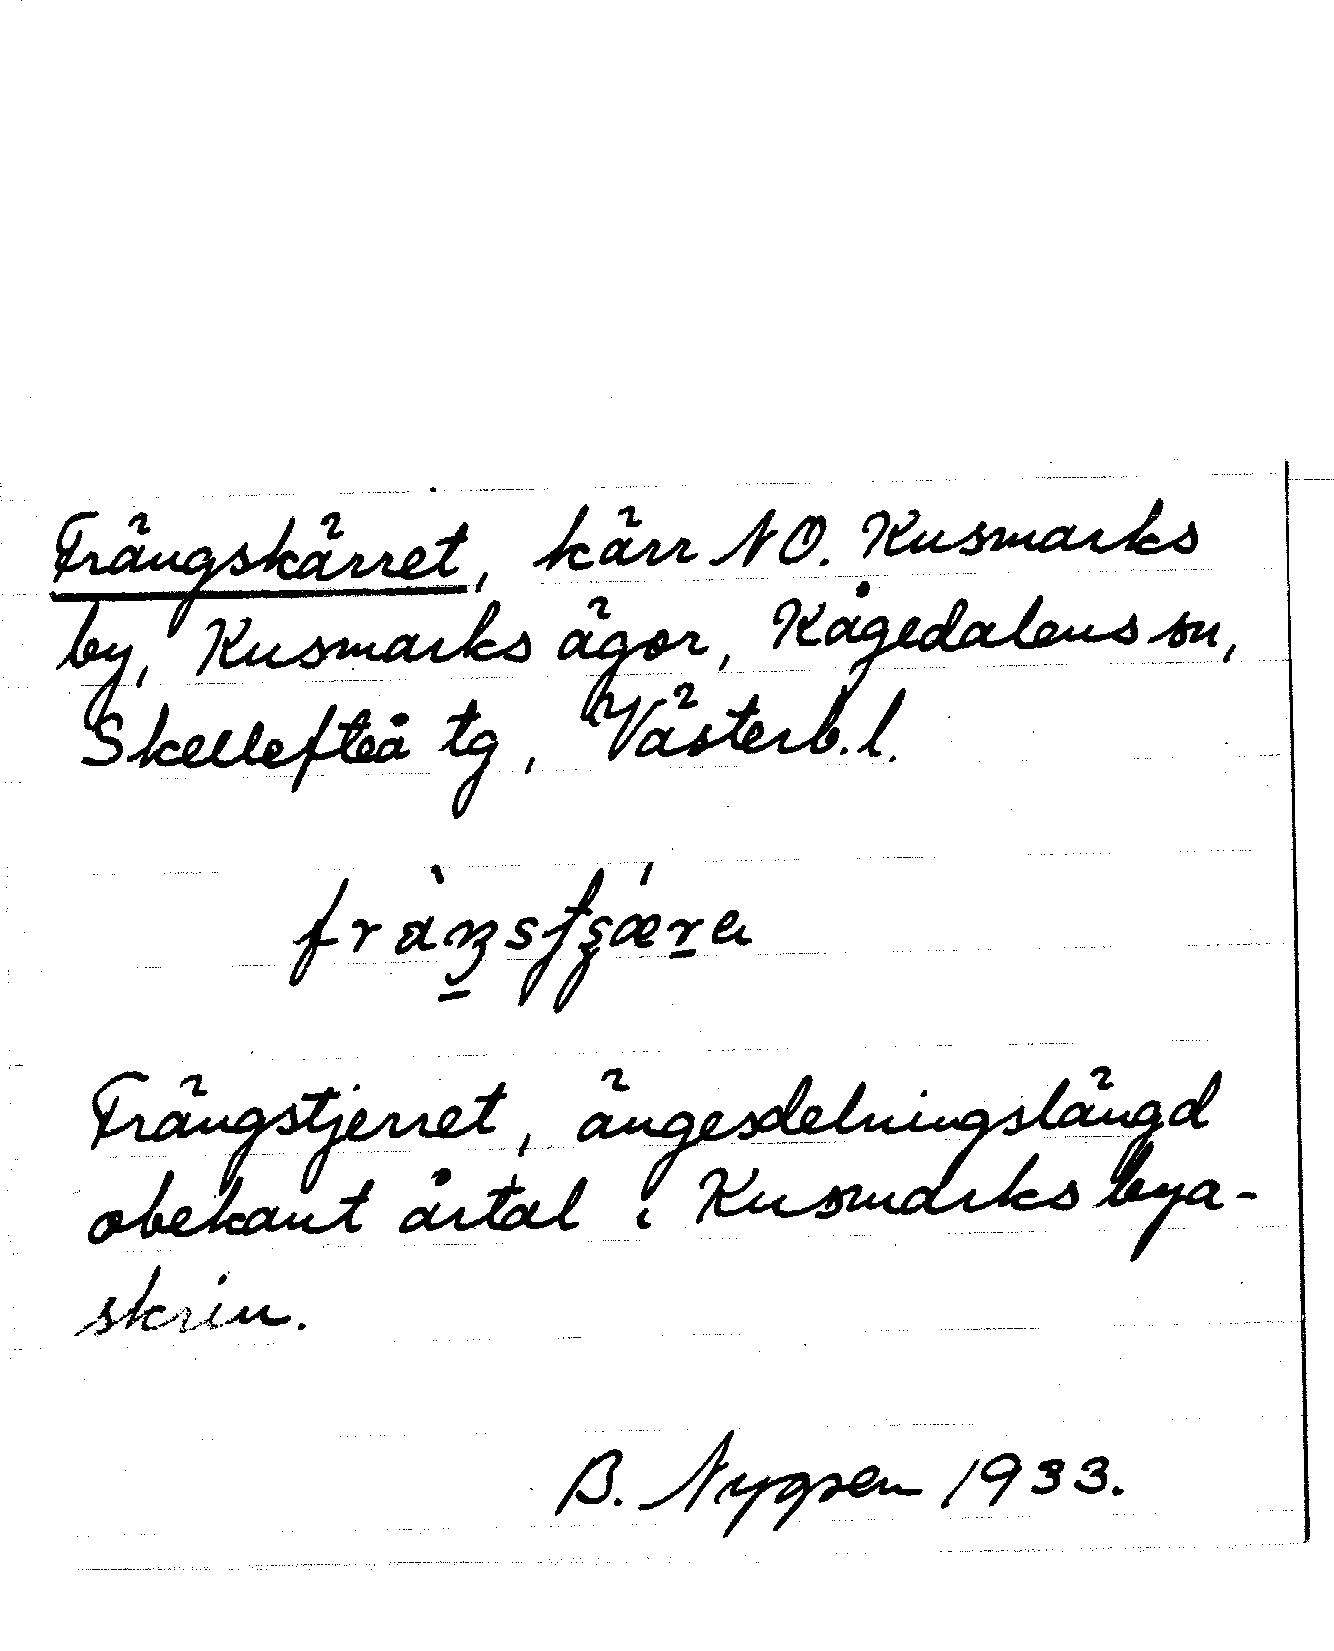 Frängskärret, kärr NO. Kusmarks
by, Kusmarks ägor, Kågedalens sn,
Skellefteå tg, Västerb.l.
Frängstjerret, ängesdelningslängd
obekant årtal i Kusmarks bya-
skrin.
B. Nygren 1933.